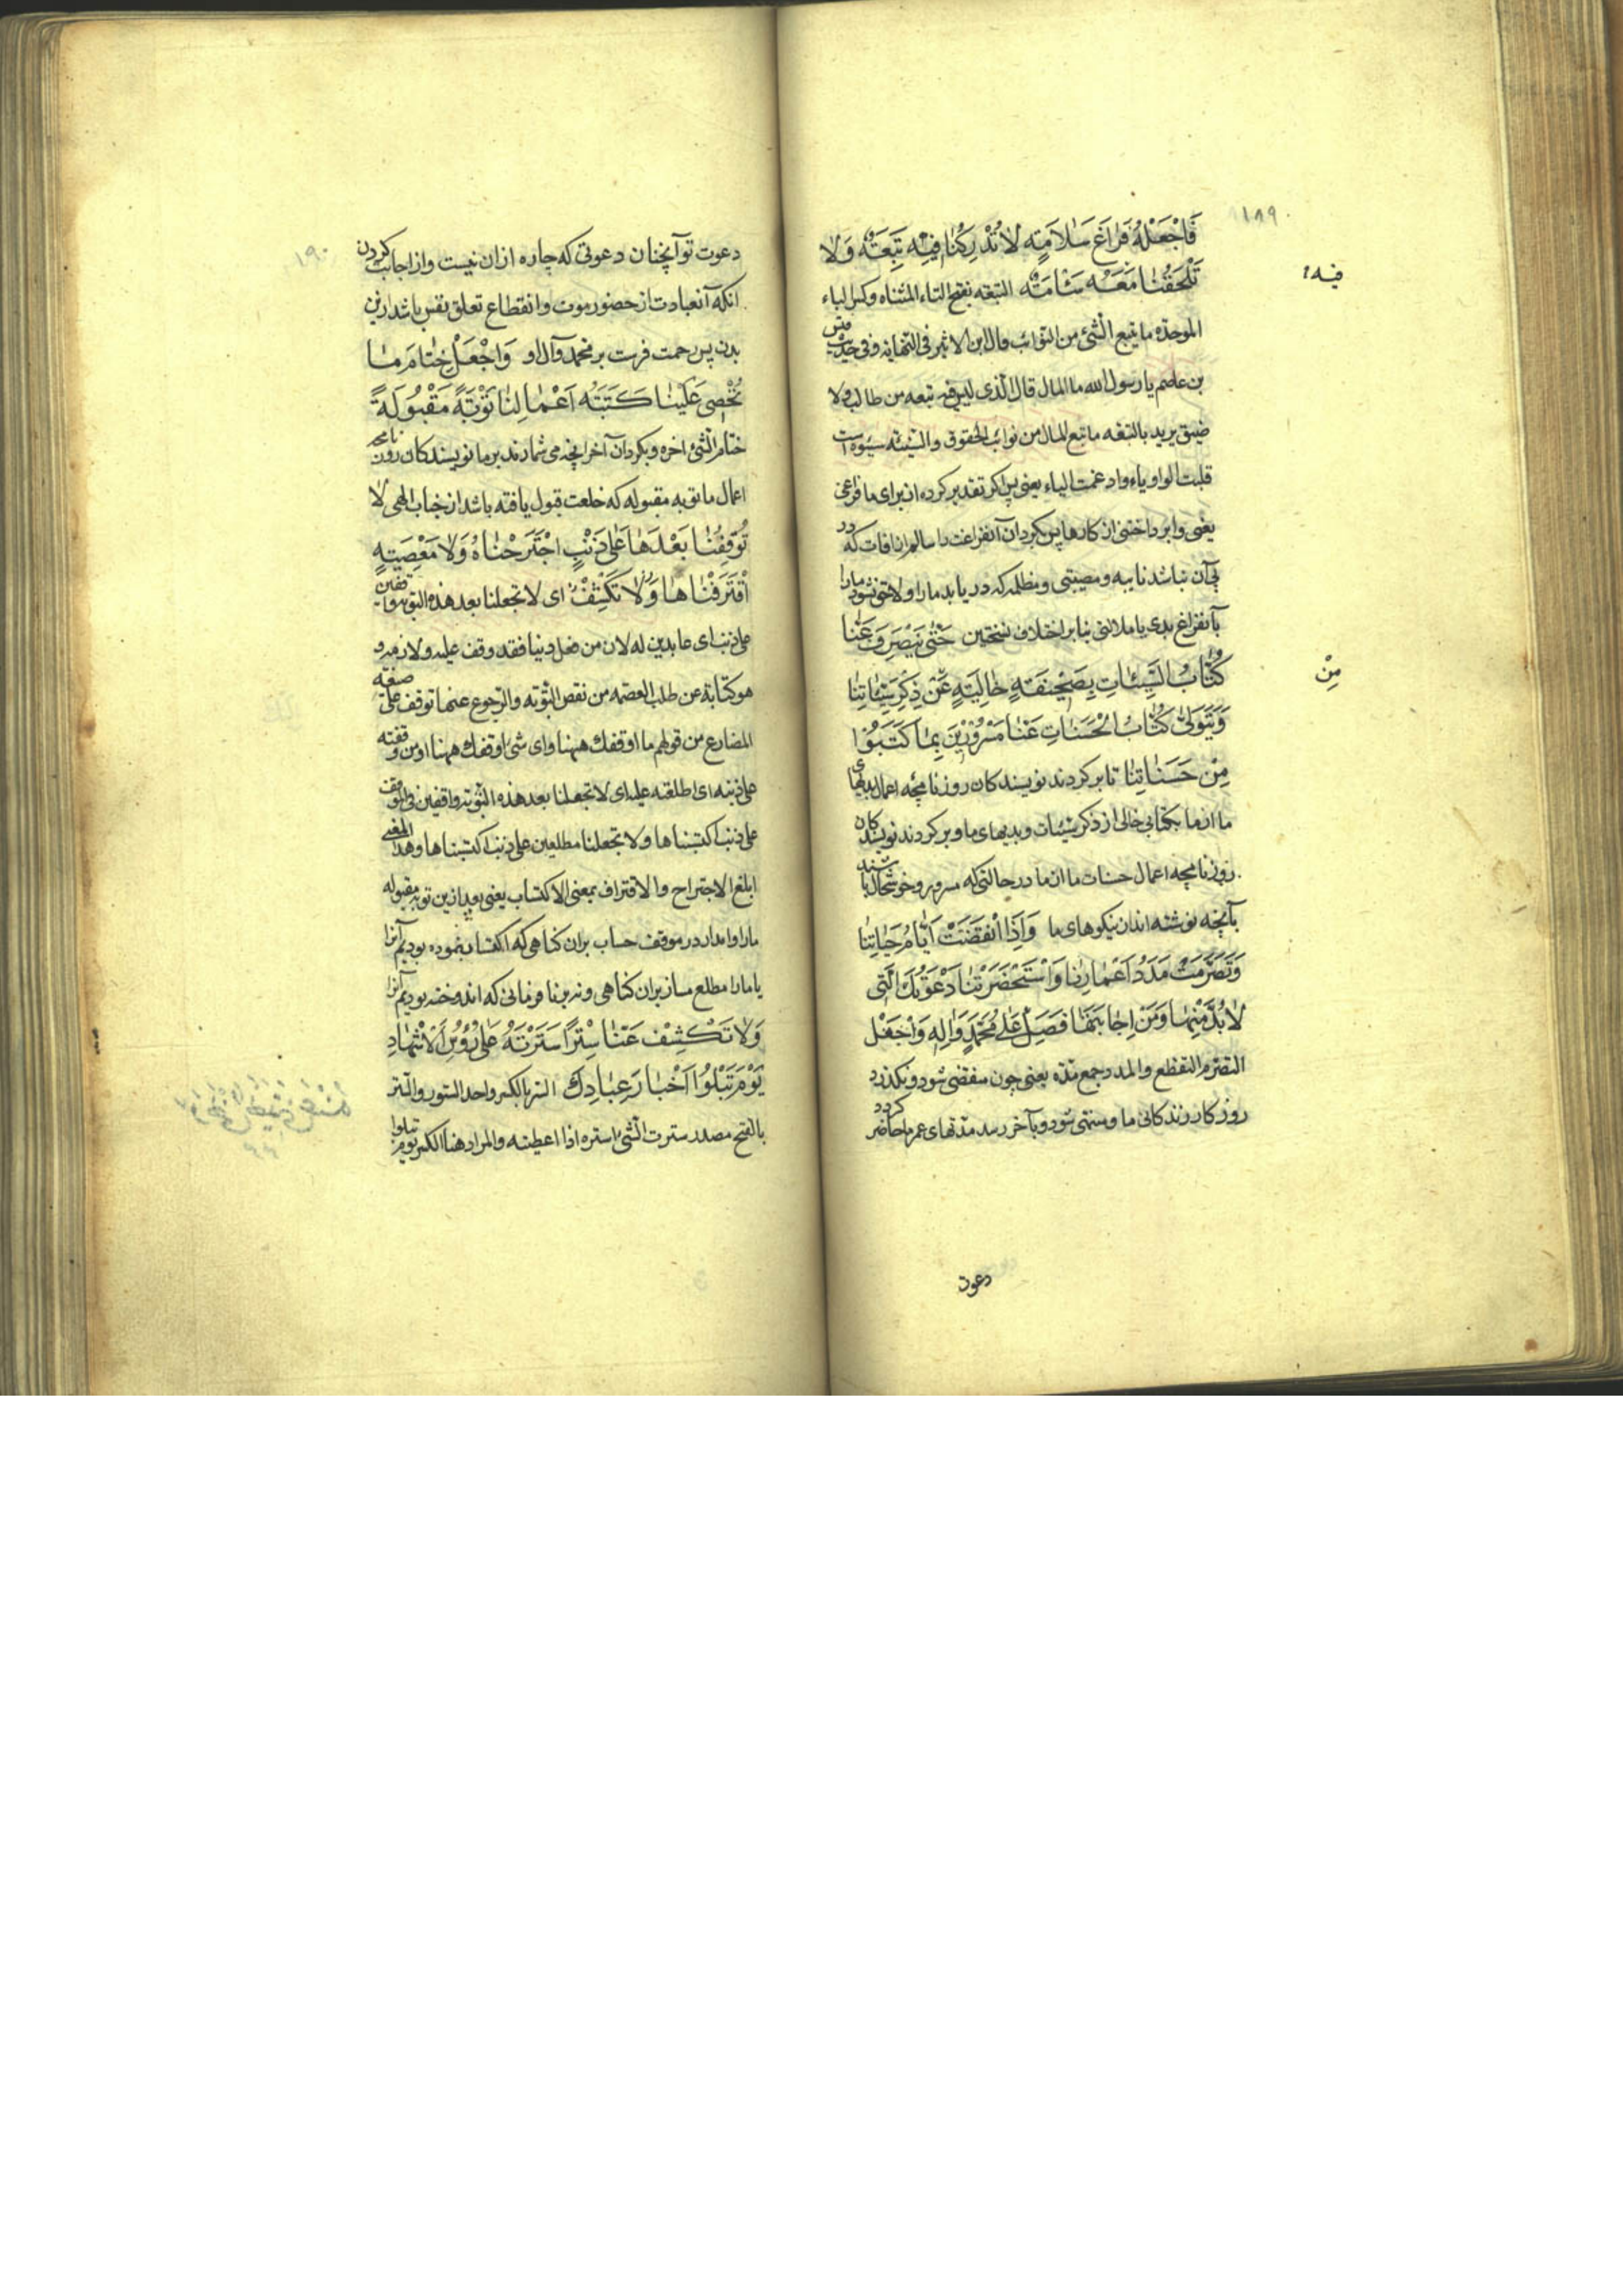 ١٨٩
فَاجْعَلْهُ فَرَاغَ سَلَامَةٍ لَا تُدْرِكُنَا فِيهِ تَبِعَةٌ وَلَا
فيه
تَلْحَقُنَا مَعَهُ سَئَامَةٌ التبعه بفتح التاء المثناه وكسر الباء
الموحدّه ما يتبع الشئ من النوائب قال ابن الاثير فى النهايه وفى حديث قيس
بن عاصم يا رسول الله ما المال قال الذى ليس فيه تبعه من طالب ولا
ضيق يريد بالتبعه ما تبع المال من نوائب الحقوق والسيئه سيوءه است
قلبت الواو ياء وادغمت الياء يعنى پس اگر تقدير كرده‌اند براى ما فراغى
يعنى وابرداختنى از كارها پس بگردان آنفراغت را سالم از افات كه در
پى آن نباشد نايبه و مصيبتى و مظلمه كه در يابد ما را و لاحق نشود ما را
بآنفراغ بدى يا ملالتى بنابر اختلاف نسختين حَتّٰى يَنْصَرِفَ عَنَّا
كُتَّابُ السَّيِّئَاتِ بِصَحِيفَةٍ خَالِيَةٍ عَنْ ذِكْرِ سَيِّئَاتِنَا
مِنْ
وَيَتَوَلّٰى كُتَّابُ الْحَسَنَاتِ عَنَّا مَسْرُورِينَ بِمَا كَتَبُوا
مِنْ حَسَنَاتِنَا تا برگردند نويسندگان روزنامچه اعمال بديهاى
ما از ما بكتابى خالى از ذكر سيئات و بديهاى ما و برگردند نويسندگان
روزنامچه اعمال حسنات ما از ما در حالتى كه مسرور و خوشحال باشند
بآنچه نوشته‌اند از نيكوهاى ما وَإِذَا انْقَضَتْ أَيَّامُ حَيَاتِنَا
وَتَصَرَّمَتْ مَدَدُ اَعْمَارِنَا وَاسْتَحْضَرَتْنَا دَعْوَتُكَ الَّتِى
لَا بُدَّ مِنْهَا وَمِنْ اِجَابَتِهَا فَصَلِّ عَلٰى مُحَمَّدٍ وَاٰلِهِ وَاجْعَلْ
التصرم التقطع والمدد جمع مدّه يعنى چون منقضى شود و بگذرد
روزگار زندگانى ما و منتهى شود و بآخر رسد مدتهاى عمر ما حاضر گردد
دعوت
١٩٠
دعوت تو آنچنان دعوتى كه چاره از ان نيست و از اجابت كردن
انكه آنعبادت از حضور موت و انقطاع تعلق نفس باشد ازين
بدن پس رحمت فرست بر محمد و آل او وَاجْعَلْ خِتَامَ مَا
تُحْصِى عَلَيْنَا كَتَبَةُ اَعْمَالِنَا تَوْبَةً مَقْبُولَةً
ختام الشئ اخره و بگردان آخر انچه مى شمارند بر ما نويسندگان روزنامچه
اعمال ما توبه مقبوله كه خلعت قبول يافته باشد از جناب الهى لَا
تُوقِفُنَا بَعْدَهَا عَلٰى ذَنْبٍ اجْتَرَحْنَاهُ وَلَا مَعْصِيَةٍ
اقْتَرَفْنَاهَا وَلَا تَكْشِفْ اى لا تجعلنا بعد هذه التوبه واقفين
على ذنب اى عابدين له لان من فعل ذنبا فقد وقف عليه ولازمه و
هو كناية عن طلب العصمه من نقص التوبه والرجوع عنها توقف على صيغة
المضارع من قولهم ما اوقفك ههنا واى شئ اوقفك ههنا او من وقفته
على ذنبه اى اطلعته عليه اى لا تجعلنا بعد هذه التوبه واقفين فى الموقف
على ذنب اكتسبناها ولا تجعلنا مطلعين على ذنب اكتسبناها وهذا المعنى
ابلغ الاجتراح والاقتراف بمعنى الاكتساب يعنى بعد ازين توبه مقبوله
ما را وامدار در موقف حساب بران گناهى كه اكتساب نموده بوديم آنرا
يا ما را مطلع مساز بران گناهى و نه برنا فرمانى كه اندوخته بوديم آنرا
وَلَا تَكْشِفْ عَنَّا سِتْرًا سَتَرْتَهُ عَلٰى رُؤُسِ الْاَشْهَادِ
يَوْمَ تَبْلُوا اَخْبَارَ عِبَادِكَ الستر بالكسر واحد الستور والستر
بالفتح مصدر سترت الشئ استره اذا اعطيته والمراد هنا الكسر يوم تبلوا